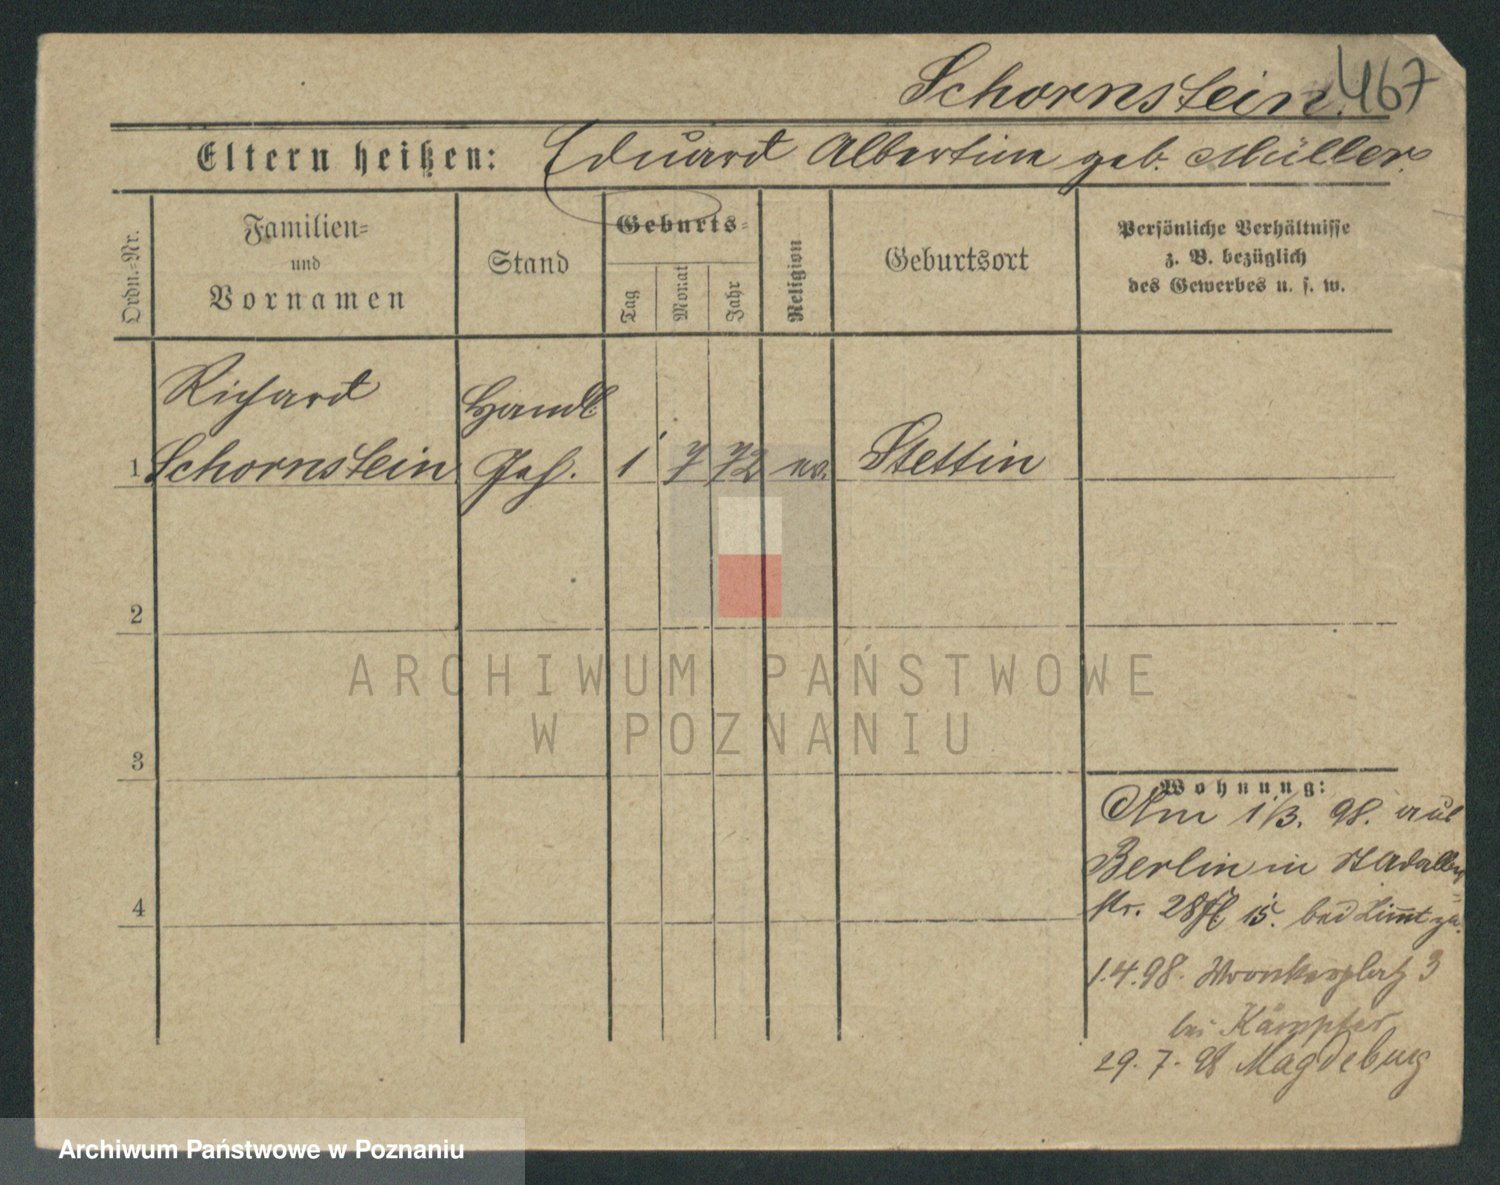 Schornstein. 467
Eltern heißen: Eduard Albertine geb. Müller.
Ordn.-Nr.
Familien-
und
Vornamen
Stand
Geburts-
Tag
Monat
Jahr
Religion
Geburtsort
Persönliche Verhältnisse
z. B. bezüglich
des Gewerbes u. s. w.
Richard Handl.
1 Schornstein Geh. 1 7 72 ev. Stettin
2
ARCHIWUM PAŃSTWOWE
W POZNANIU
3
Wohnung:
Am 1/3. 98. aus
Berlin in St Adalbert
str. 28 15. bei zu.
4
1.4.98. Wronkerplatz 3
bei Kämpfer
29. 7. 98 Magdeburg
Archiwum Państwowe w Poznaniu